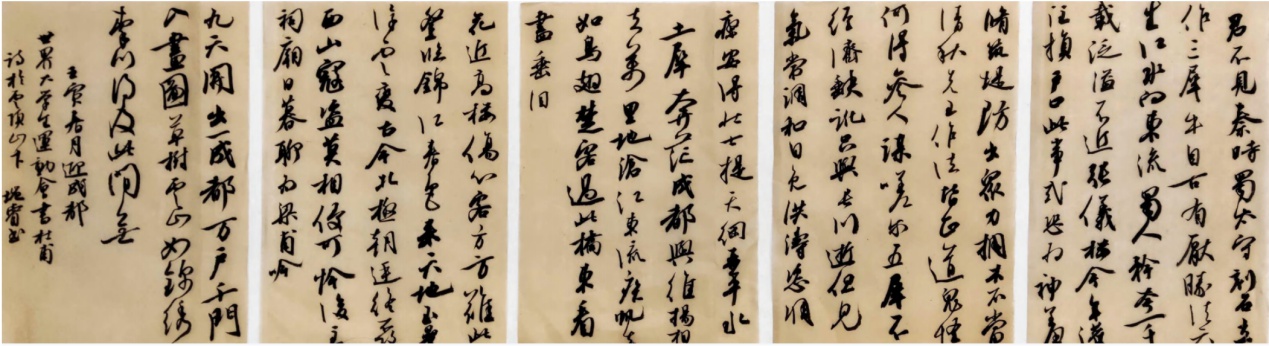 君不見秦時蜀太守刻石立
作三犀牛自古有厭勝法天
生江水向東流蜀人矜夸一千
載泛溢不近張儀樓今年灌
注損戶口此事或恐為神羞
脩筑堤防出眾力擁木石當
清秋先王作法皆正道鬼怪
何得參人謀嗟尔五犀不
經濟缺訛只與長川逝但見
氣常調和自免洪濤恣凋
瘵安得壯士提天綱再平水
土犀奔茫成都與維揚相
去萬里地滄江東流疾帆去
如鳥翅楚客過此橋東看
盡垂泪
花近高樓傷心客万方難此
登臨錦江春色來天地玉壘
浮雲變古今北極朝廷終
西山寇盜莫相侵可憐後主
祠廟日暮聊為梁甫吟
九天開出一成都万戶千門
入畫圖草樹雲山如錦繡
秦川得及此間無
壬寅春月迎成都
世界大學生運動會書杜甫
詩於雲頂山下